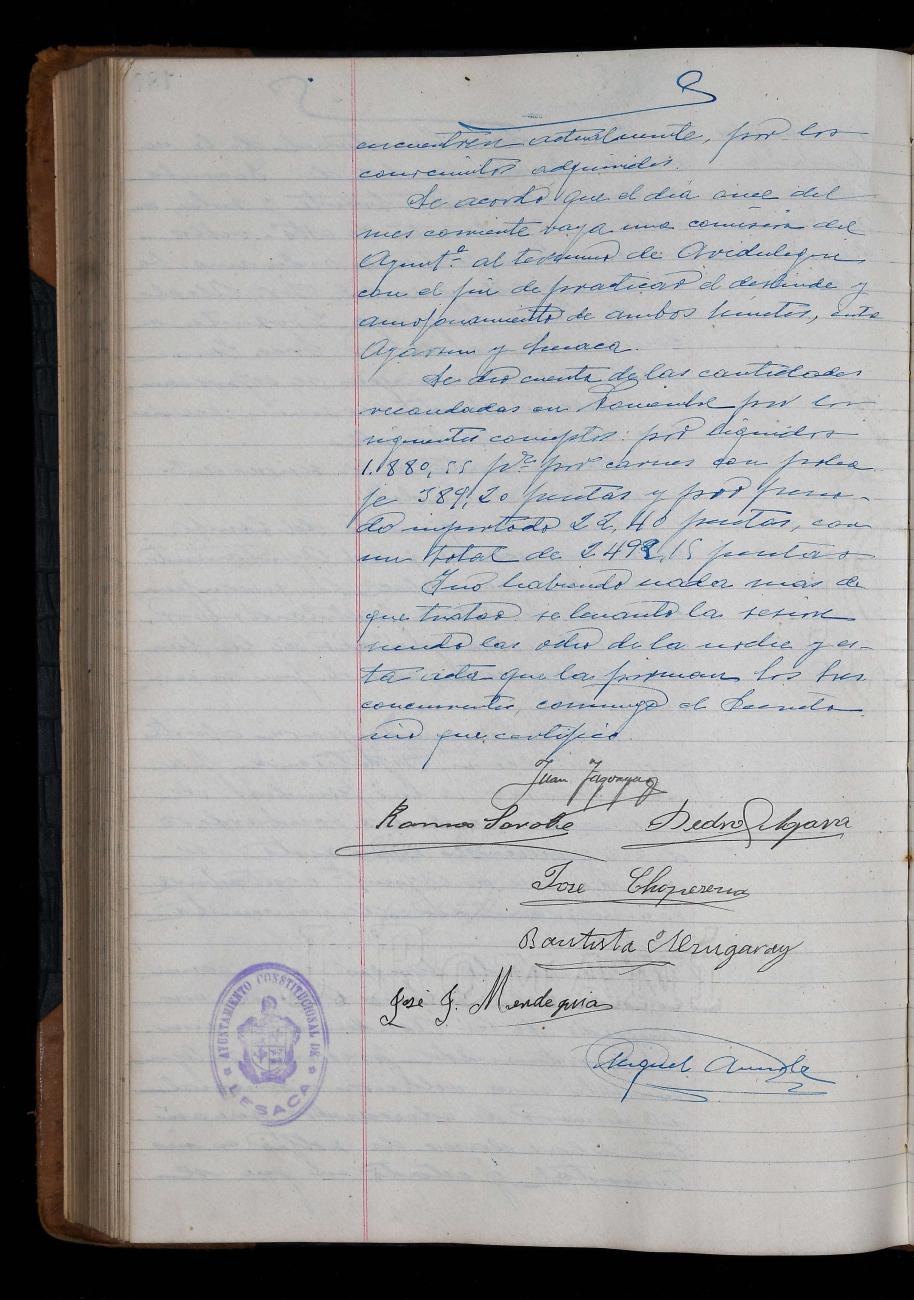 encuentren actualmente, por los
conocimientos adquiridos.
Se acordó que el día once del
mes corriente vaya una comisión del
Ayuntº al termino de
con el fin de practicar el deslinde y
amojonamiento de ambos límites, entre
y Lesaca.
Se dió cuenta de las cantidades
recaudadas en Noviembre por los
siguientes conceptos: por líquidos
1.880,55 pts por carnes con
je 589,20 pesetas y por
do importado 22,40 pesetas, con
un total de 2.492,15 pesetas
Y no habiendo nada más de
que tratar se levantó la sesión
siendo las ocho de la noche y es-
ta acta que la firman los tres
concurrentes, conmigo el Secreta
rio que certifico.
Juan
Ramos Pedro
Jose Choperena
Bautista
José J. Mendeguia
Miguel
AYUNTAMIENTO CONSTITUCIONAL DE
LESACA